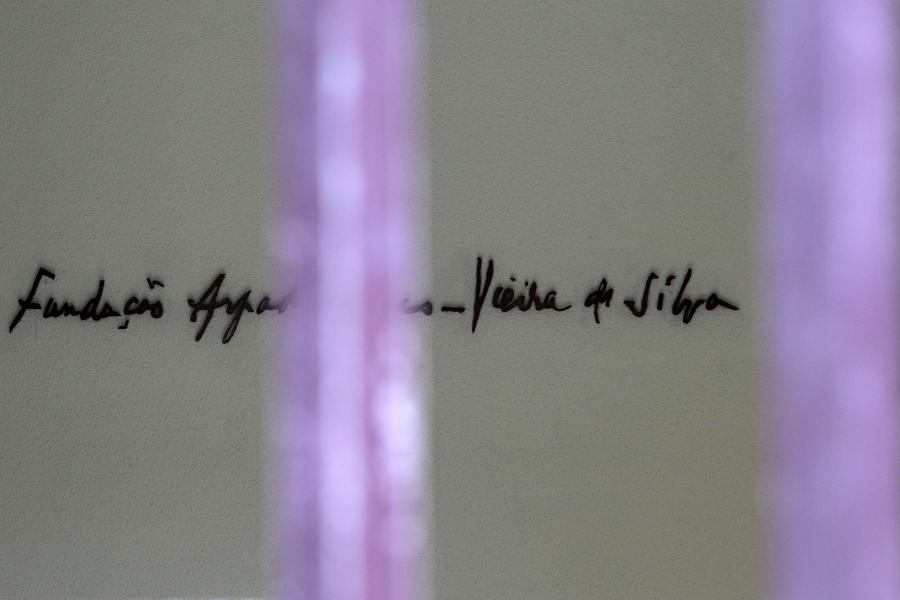 Fundação Arpad -Vieira da Silva